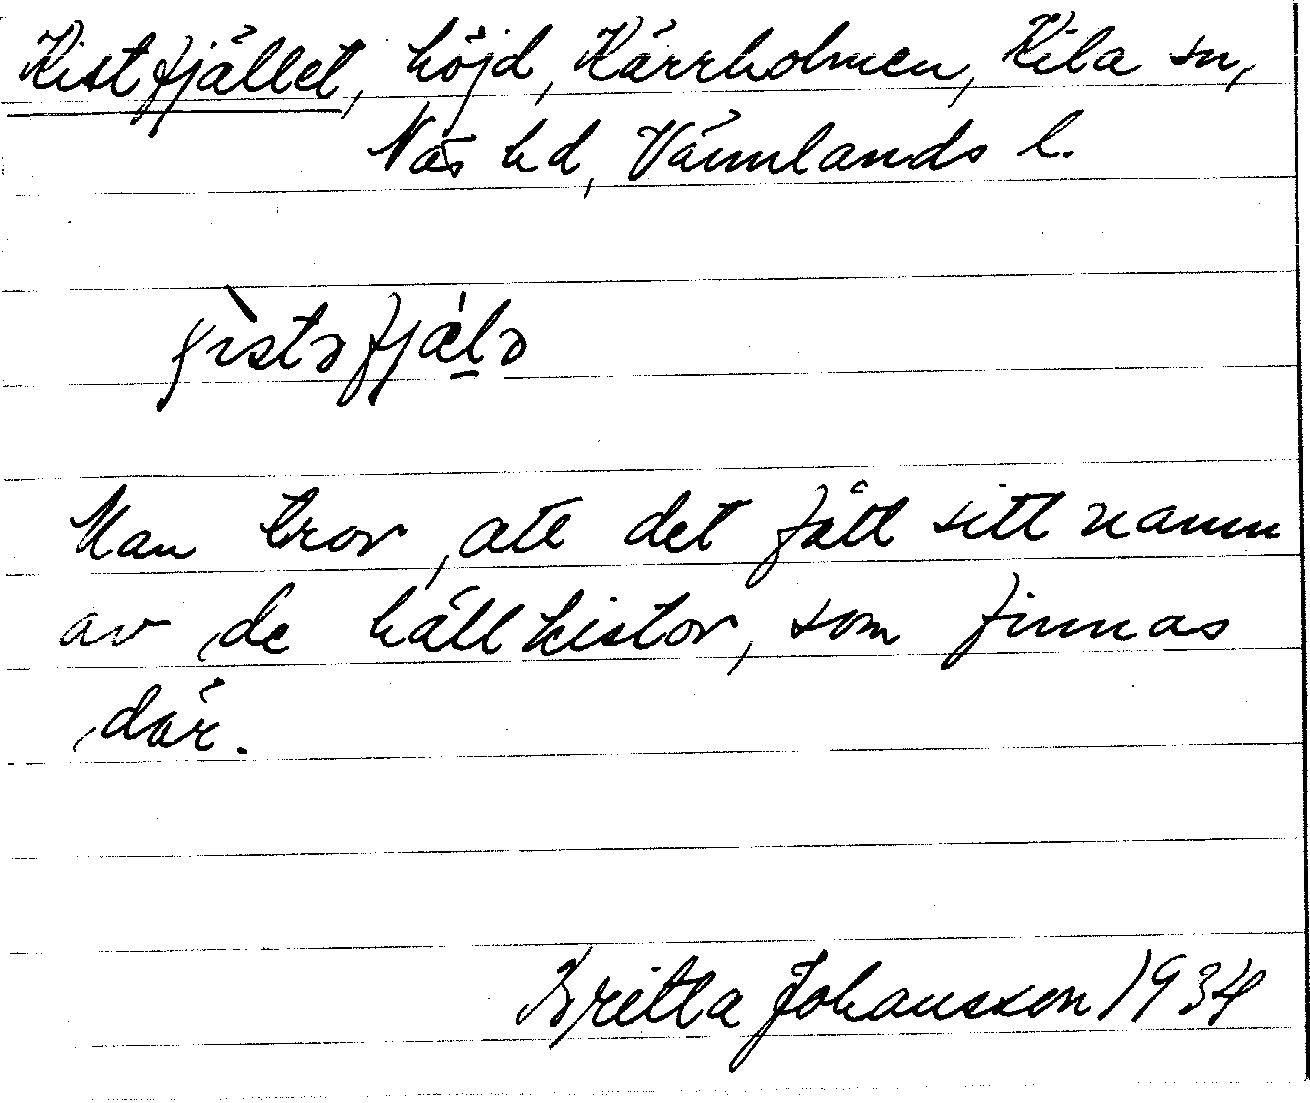 Kistfjället, höjd, Kärrholmen, Kila sn,
Näs hd, Värmlands l.
Man tror, att det fått sitt namn
av de hällkistor, som finnas
där.
Britta Johansson 1934